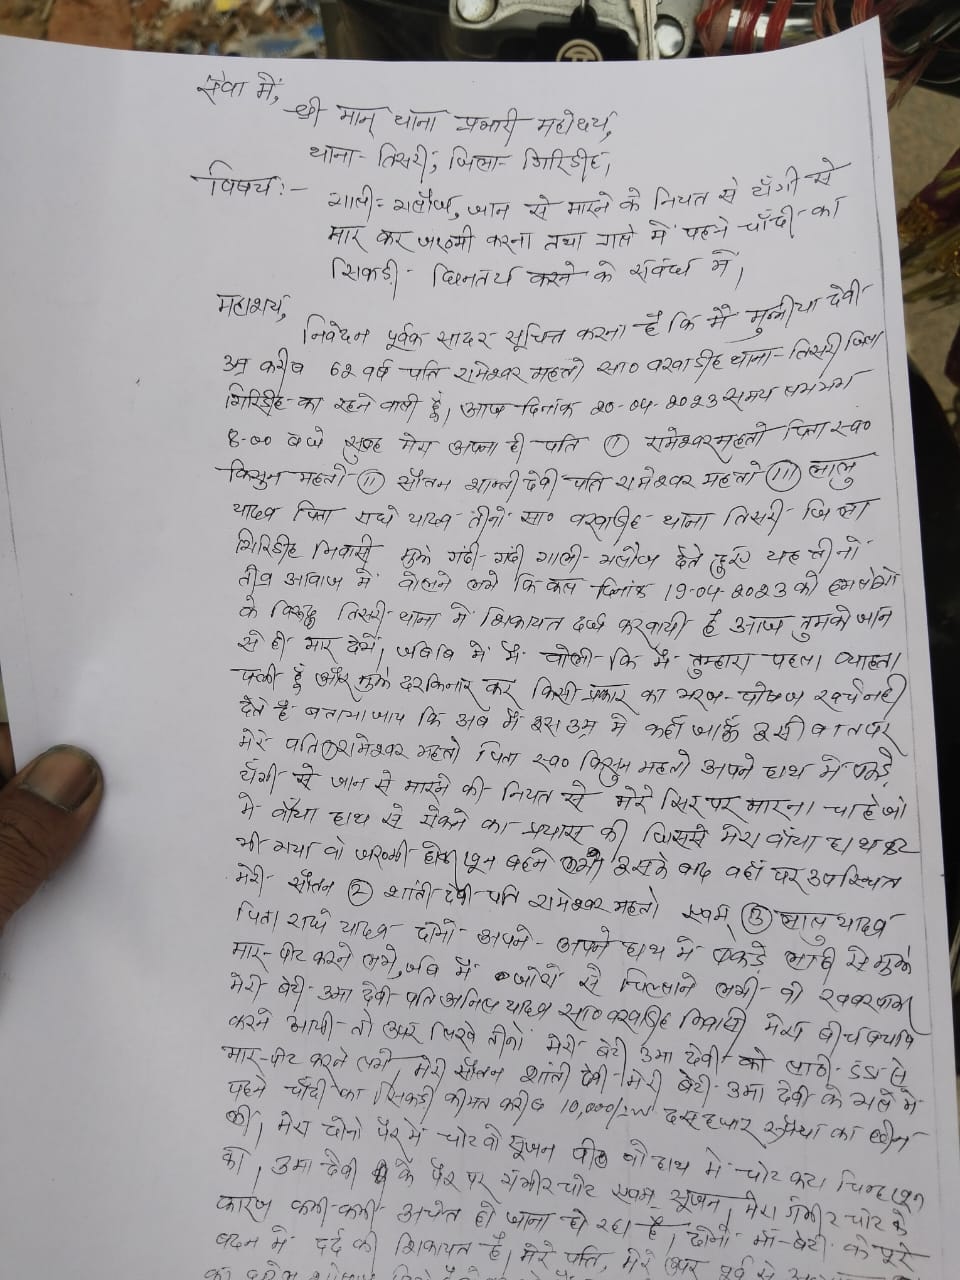 सेवा में,
श्री मान् थाना प्रभारी महोदय,
थाना- तिसरी, जिला- गिरिडीह,
विषय:- गाली- गलौज, जान से मारने के नियत से टाँगी से
मार कर जख्मी करना तथा गले में पहने चाँदी का
सिकड़ी- छिनतय करने के संबंध में,
महाशय,
निवेदन पूर्वक सादर सूचित करना है कि मैं मुन्नीया देवी
उम्र करीब 62 वर्ष पति रामेश्वर महतो सा० बरवाडीह थाना- तिसरी जिला
गिरिडीह का रहने वाली हूँ, आज दिनांक 20-04-2023 समय लगभग
8-00 बजे सुबह मेरा अपना ही पति ① रामेश्वर महतो पिता स्व०
किसुन महतो ⑪ सौतन शान्ती देवी पति रामेश्वर महतो (III) लालु
यादव पिता राधे यादव तीनों सा० बरवाडीह थाना तिसरी- जिला
गिरिडीह निवासी मुझे गंदी- गंदी गाली- गलौज देते हुए यह तीनों
तीव्र आवाज में बोलने लगे कि कल दिनांक 19-04-2023 को हमलोगों
के विरूद्ध तिसरी थाना में शिकायत दर्ज करवायी है आज तुमको जान
से ही मार देगें, जवाब में मैं बोली- कि मैं तुम्हारा पहला व्याहता
पत्नी हूँ और मुझे दरकिनार कर किसी प्रकार का भरण- पोषण खर्च नही
देते है बताया जाय कि अब मैं इस उम्र में कहाँ जाऊँ इसी बात पर
मेरे पति ① रामेश्वर महतो पिता स्व० किसुन महतो अपने हाथ में पकड़े
टाँगी से जान से मारने की नियत से मेरे सिर पर मारना चाहे जो
मे बाँया हाथ से रोकने का प्रयास की जिससे मेरा बाँया हाथ कट
भी गया वो जख्मी होकर खून बहने लगा इसके बाद वहाँ पर उपस्थित
मेरी सौतन ② शांती देवी पति रामेश्वर महतो एवम् ③ लालु यादव
पिता राधे यादव दोनो अपने- अपने हाथ में पकड़े लाठी से मुझे
मार- पीट करने लगे, जब मैं जोरों से चिल्लाने लगी- तो
मेरी बेटी- उमा देवी पति अनिल यादव सा० बरवाडीह निवासी मेरा बीच बचाव
करने आयी- तो उपर लिखे तीनों मेरी बेटी उमा देवी को लाठी- डंडा से
मार-पीट करने लगे, मेरी सौतन शांती देवी मेरी बेटी- उमा देवी के गले में
पहने चाँदी का सिकड़ी कीमत करीब 10,000/- दस हजार रूपैया का छीन
ली, मेरा दोनो पैर में चोट वो सूजन पीठ वो हाथ में चोट कटा चिन्ह खून
का, उमा देवी के पैर पर गंभीर चोट एवम् सूजन, मेरा गंभीर चोट के
कारण कभी-कभी अचेत हो जाना हो रहा है, दोनों माँ- बेटी- के पूरे
बदन में दर्द की शिकायत है, मेरे पति, मेरे उपर पूर्व से